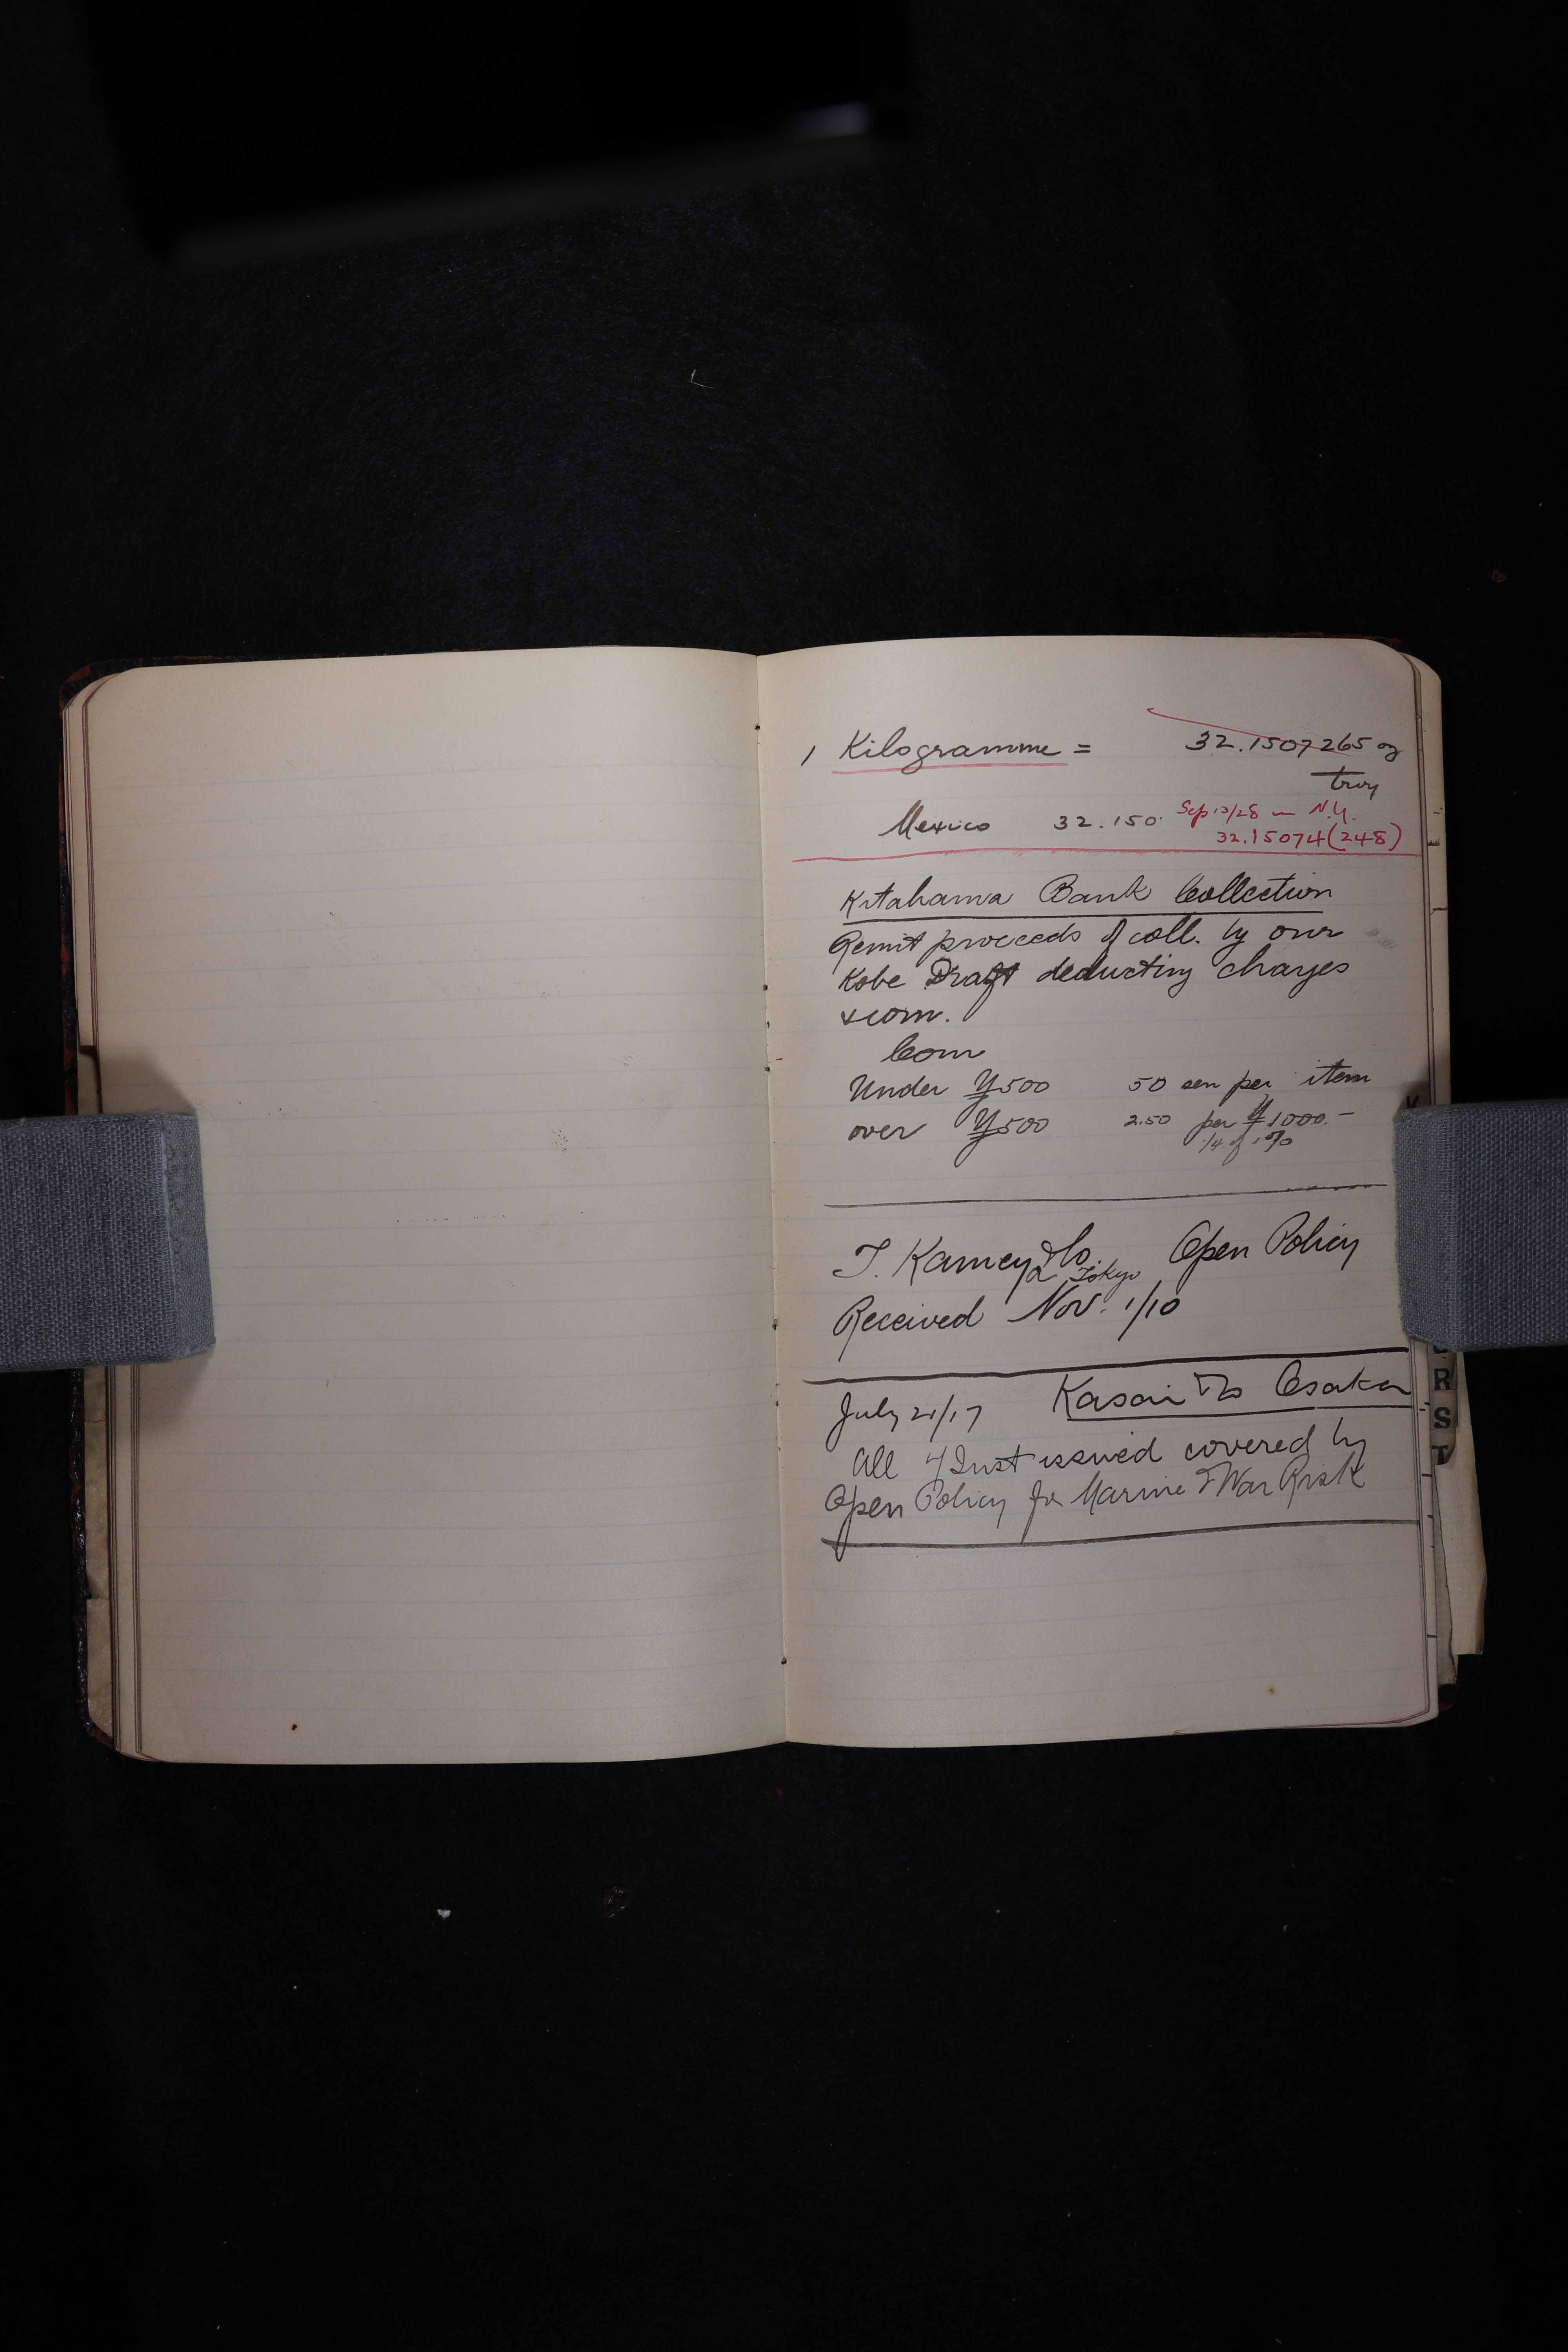 1 Kilogramme = 32.1507265 oz
troy
Mexico 32.150. Sep 13/28 in N.Y.
32.15074(248)
Kitahama Bank Collection
Remit proceeds of coll. by our
Kobe Draft deducting charges
& com.
Com
Under ¥500 50 sen per item
over ¥500 2.50 per ¥1000.–
1/4 of 1%
T. Kameya & Co. Tokyo Open Policy
Received Nov. 1/10
July 21/17 Kasai & Co Osaka
All issued covered by
Open Policy for Marine & War Risk
K
R
S
T